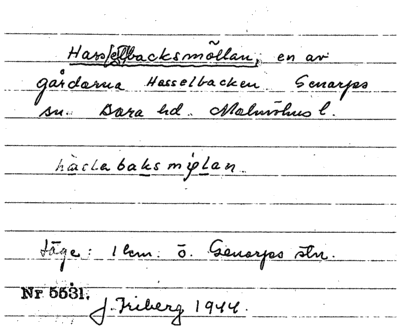 Hass[el]backsmöllan, en av
gårdarna Hasselbacken Genarps
sn. Bara hd. Malmöhus l.
Läge: 1 km. ö. Genarps stn.
Nr 5531.
J. Friberg 1944.